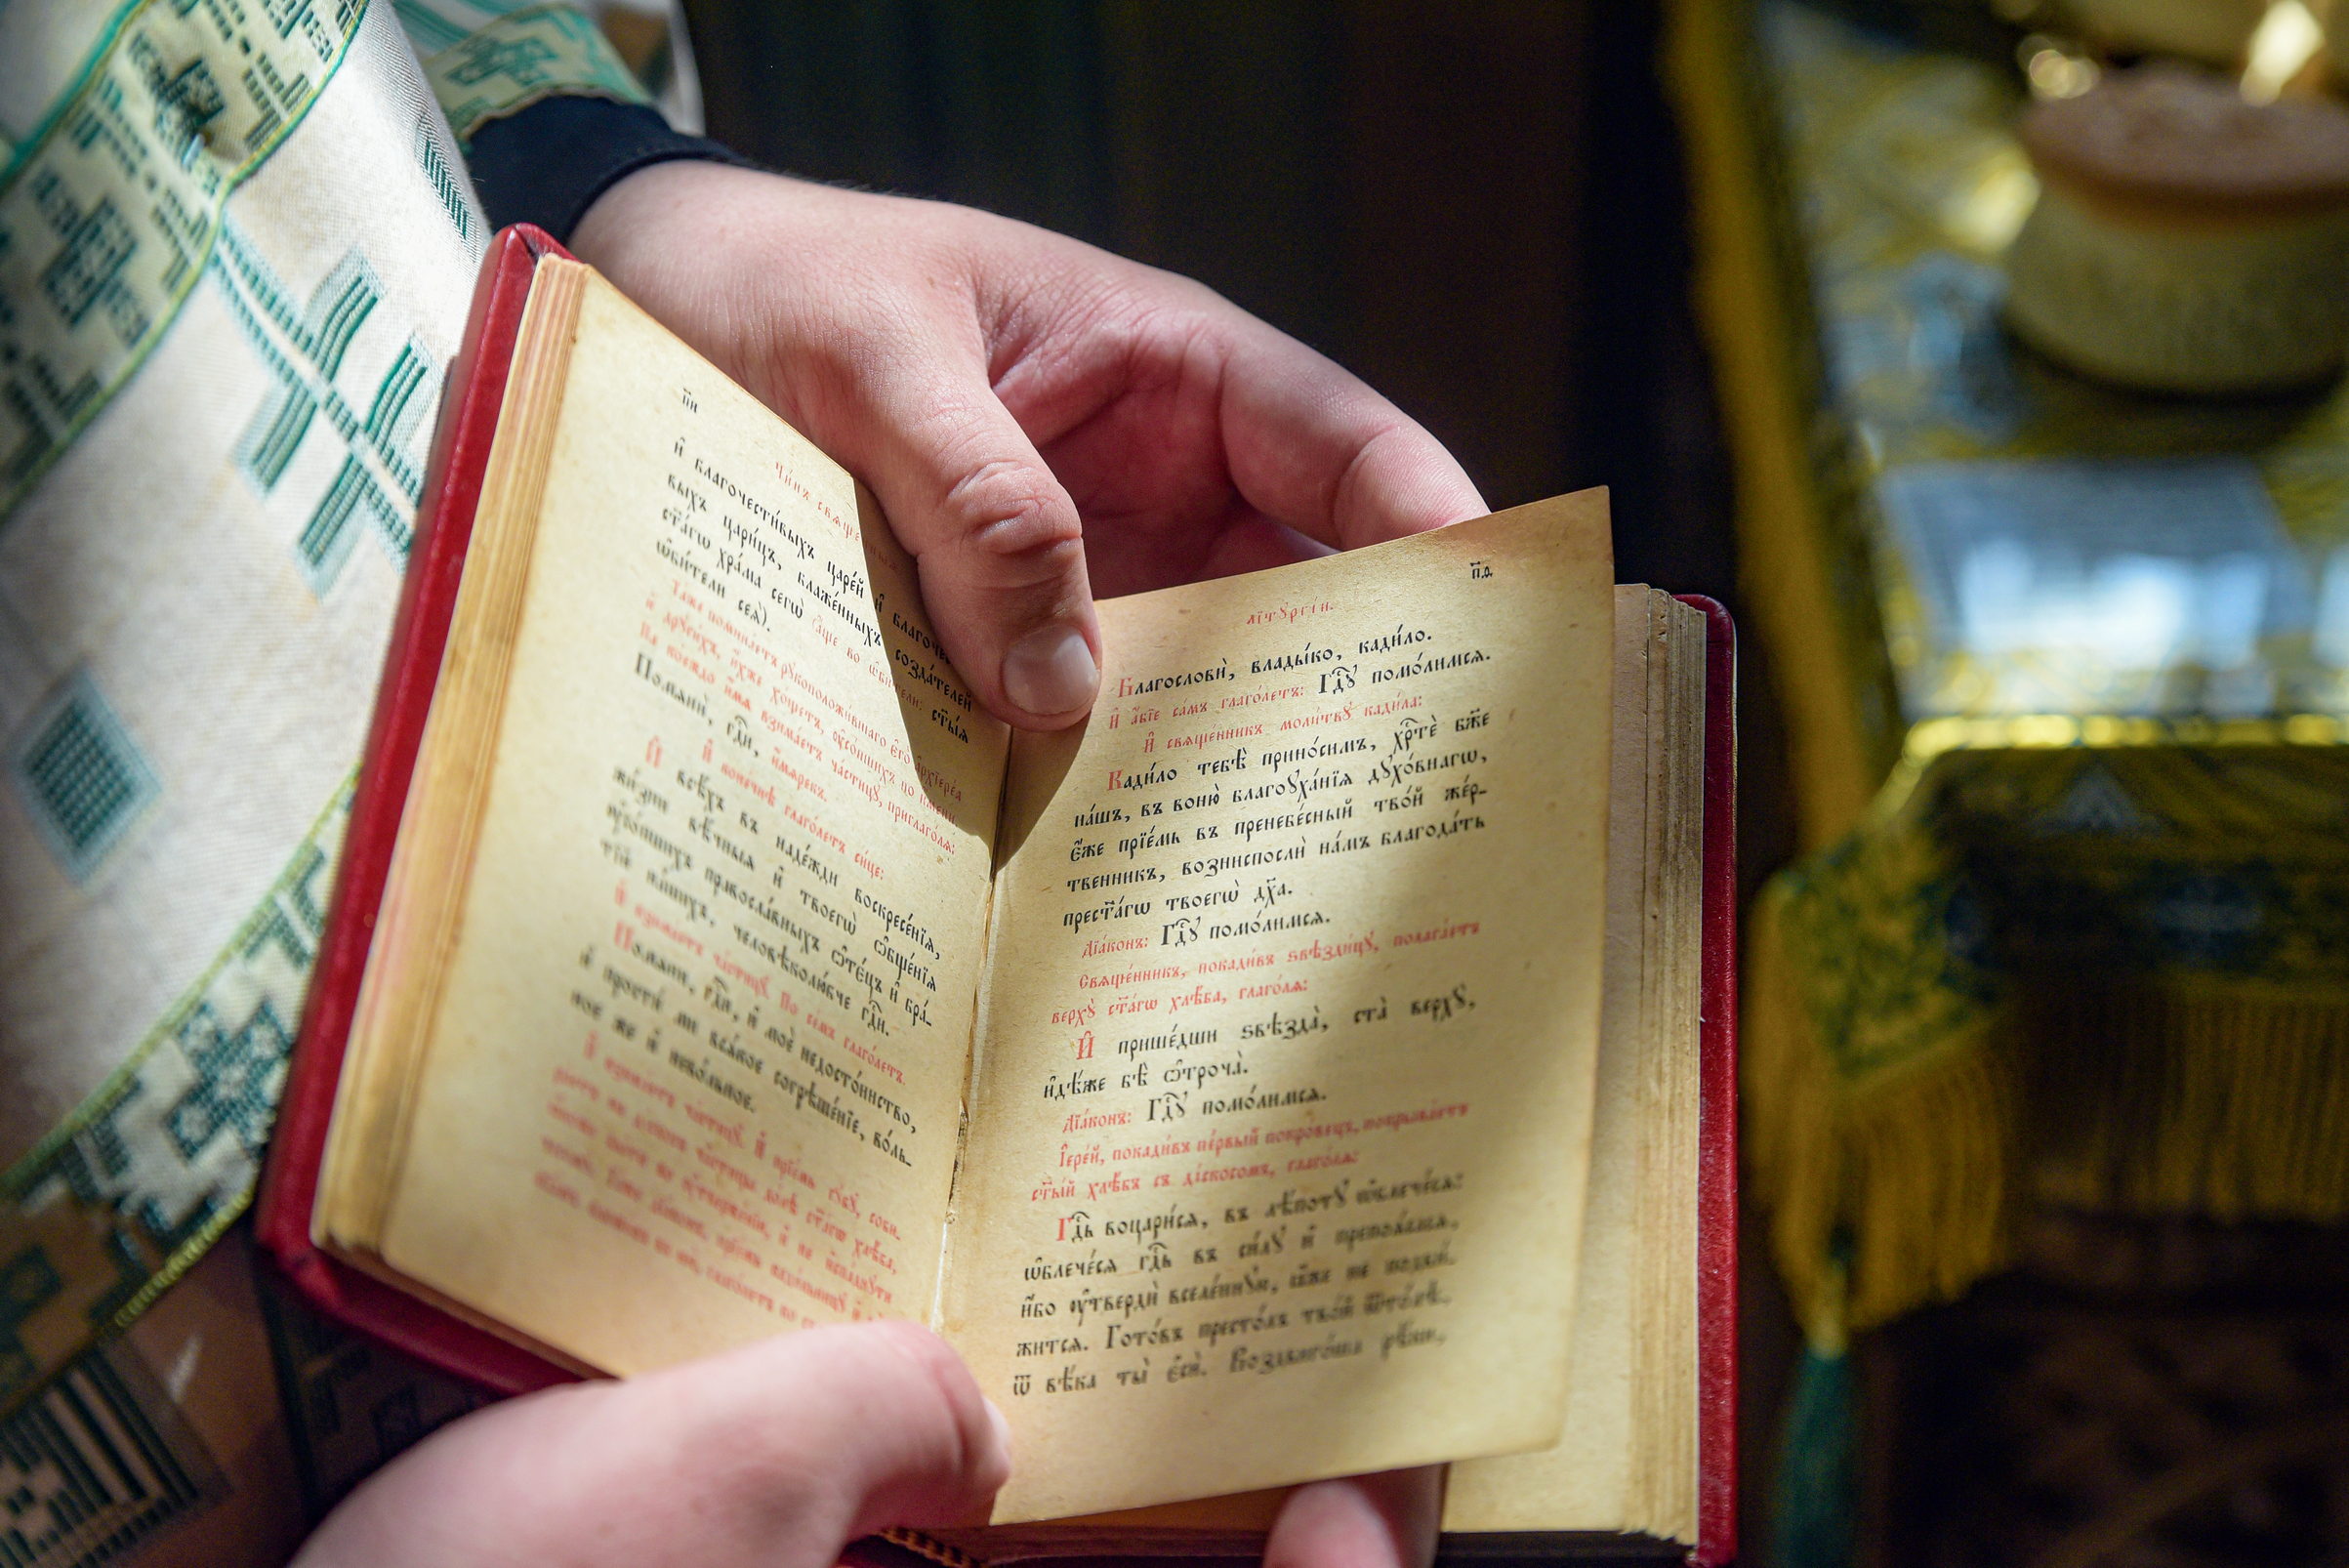 п҃и
Чи́нъ свѧще́нныѧ
и҆ благочести́выхъ царе́й и҆ благоче
выхъ цари́цъ, блаже́нныхъ созда́телей
ст҃а́гѡ хра́ма сегѡ̀ (а҆́ще во ѻ҆би́тели: ст҃ы́ѧ
ѻ҆би́тели сеѧ̀).
Та́же помина́етъ рꙋкоположи́вшаго є҆го̀ а҆рхїере́а
и҆ дрꙋги́хъ, и҆̀хже хо́щетъ, ᲂу҆со́пшихъ по и҆́мени.
На ко́еждо и҆́мѧ взима́етъ части́цꙋ, приглаго́лѧ:
Помѧнѝ, гдⷭ҇и, и҆́марекъ.
И҆ коне́чнѣе глаго́летъ си́це:
И҆ всѣ́хъ въ наде́жди воскресе́нїѧ,
жи́зни вѣ́чныѧ и҆ твоегѡ̀ ѻ҆бще́нїѧ
ᲂу҆со́пшихъ правосла́вныхъ ѻ҆те́цъ и҆ бра́-
тїй на́шихъ, человѣколю́бче гдⷭ҇и.
И҆ взима́етъ части́цꙋ. По се́мъ глаго́летъ:
Помѧнѝ, гдⷭ҇и, и҆ моѐ недосто́инство,
и҆ простѝ ми всѧ́кое согрѣше́нїе, во́ль-
ное же и҆ нево́льное.
И҆ взима́етъ части́цꙋ. И҆ прїе́мь гꙋ́бꙋ, соби-
п҃ѳ
лїтꙋргі́и.
Благословѝ, влады́ко, кади́ло.
И҆ а҆́бїе са́мъ глаго́летъ: Гдⷭ҇ꙋ помо́лимсѧ.
И҆ свѧще́нникъ моли́твꙋ кади́ла:
Кади́ло тебѣ̀ прино́симъ, хрⷭ҇тѐ бж҃е
на́шъ, въ воню̀ благоꙋха́нїѧ дꙋхо́внагѡ,
є҆́же прїе́мь въ пренебе́сный тво́й же́р-
твенникъ, возниспослѝ на́мъ благода́ть
прест҃а́гѡ твоегѡ̀ дх҃а.
Дїа́конъ: Гдⷭ҇ꙋ помо́лимсѧ.
Свѧще́нникъ, покади́въ ѕвѣзди́цꙋ, полага́етъ
верхꙋ̀ ст҃а́гѡ хлѣ́ба, глаго́лѧ:
И҆ прише́дши ѕвѣзда̀, ста̀ верхꙋ̀,
и҆дѣ́же бѣ̀ ѻ҆троча̀.
Дїа́конъ: Гдⷭ҇ꙋ помо́лимсѧ.
І҆ере́й, покади́въ пе́рвый покро́вецъ, покрыва́етъ
ст҃ы́й хлѣ́бъ съ ді́скосомъ, глаго́лѧ:
Гдⷭ҇ь воцари́сѧ, въ лѣ́потꙋ ѡ҆блече́сѧ:
ѡ҆блече́сѧ гдⷭ҇ь въ си́лꙋ и҆ препоѧ́сасѧ,
и҆́бо ᲂу҆твердѝ вселе́ннꙋю, ꙗ҆́же не подви́-
житсѧ. Гото́въ престо́лъ тво́й ѿто́лѣ,
ѿ вѣ́ка ты̀ є҆сѝ. Воздвиго́ша рѣ́ки,